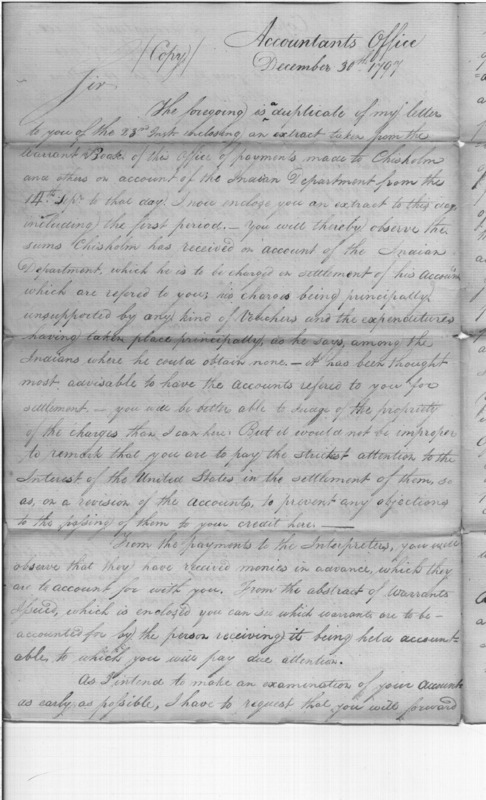 Accountants Office
(Copy) December 30th 1797
Sir
The foregoing is a duplicate of my letter
to you of the 23rd Inst. enclosing an extract taken from the
Warrant Book of this Office of payments made to Chisholm
and others on account of the Indian Department from the
14th to that day. I now enclose you an extract to this day
including the first period. — You will thereby observe the
sums Chisholm has received on account of the Indian
Department, which he is to be charged in settlement of his Accounts
which are refered to you; his charges being principally
unsupported by any kind of Vouchers and the expenditures
having taken place principally, as he says, among the
Indians where he could obtain none. — it has been thought
most advisable to have the accounts refered to you for
settlement. — you will be better able to Judge of the propriety
of the charges than I can here. But it would not be improper
to remark that you are to pay the strictest attention to the
Interest of the United States in the settlement of them, so
as, on a revision of the accounts, to prevent any objections
to the passing of them to your credit here. —
From the payments to the Interpreters, you will
observe that they have received monies in advance, which they
are to account for with you. From the abstract of Warrants
Issued, which is enclosed you can see which warrants are to be
accounted for by the person receiving it being held account-
able, to which you will pay due attention.
As I intend to make an examination of your Accounts
as early as possible, I have to request that you will forward